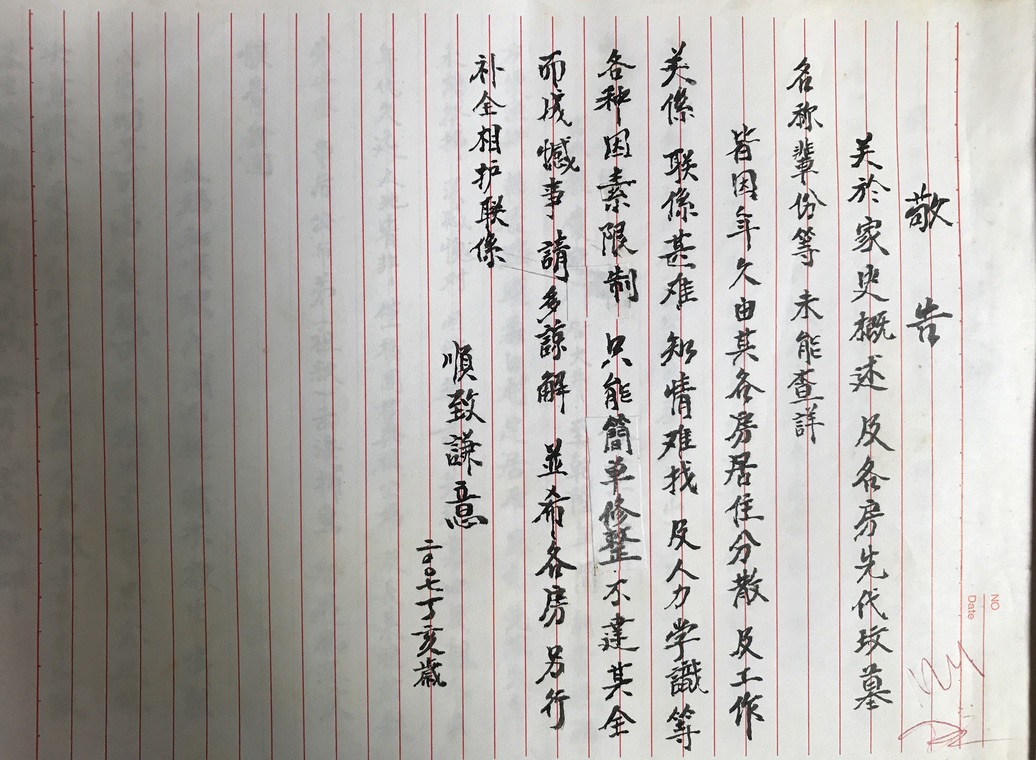 敬告
关於家史概述 及各房先代坟墓
名称輩份等 未能查詳
皆因年久由某各房居住分散 及工作
关係 联係甚难 知情难找 及人力学識等
各种因素限制 只能簡单修整 不達其全
而成憾事 請多諒解 並希各房另行
补全相护联係
順致謙意
二〇〇七丁亥歲
NO
Date